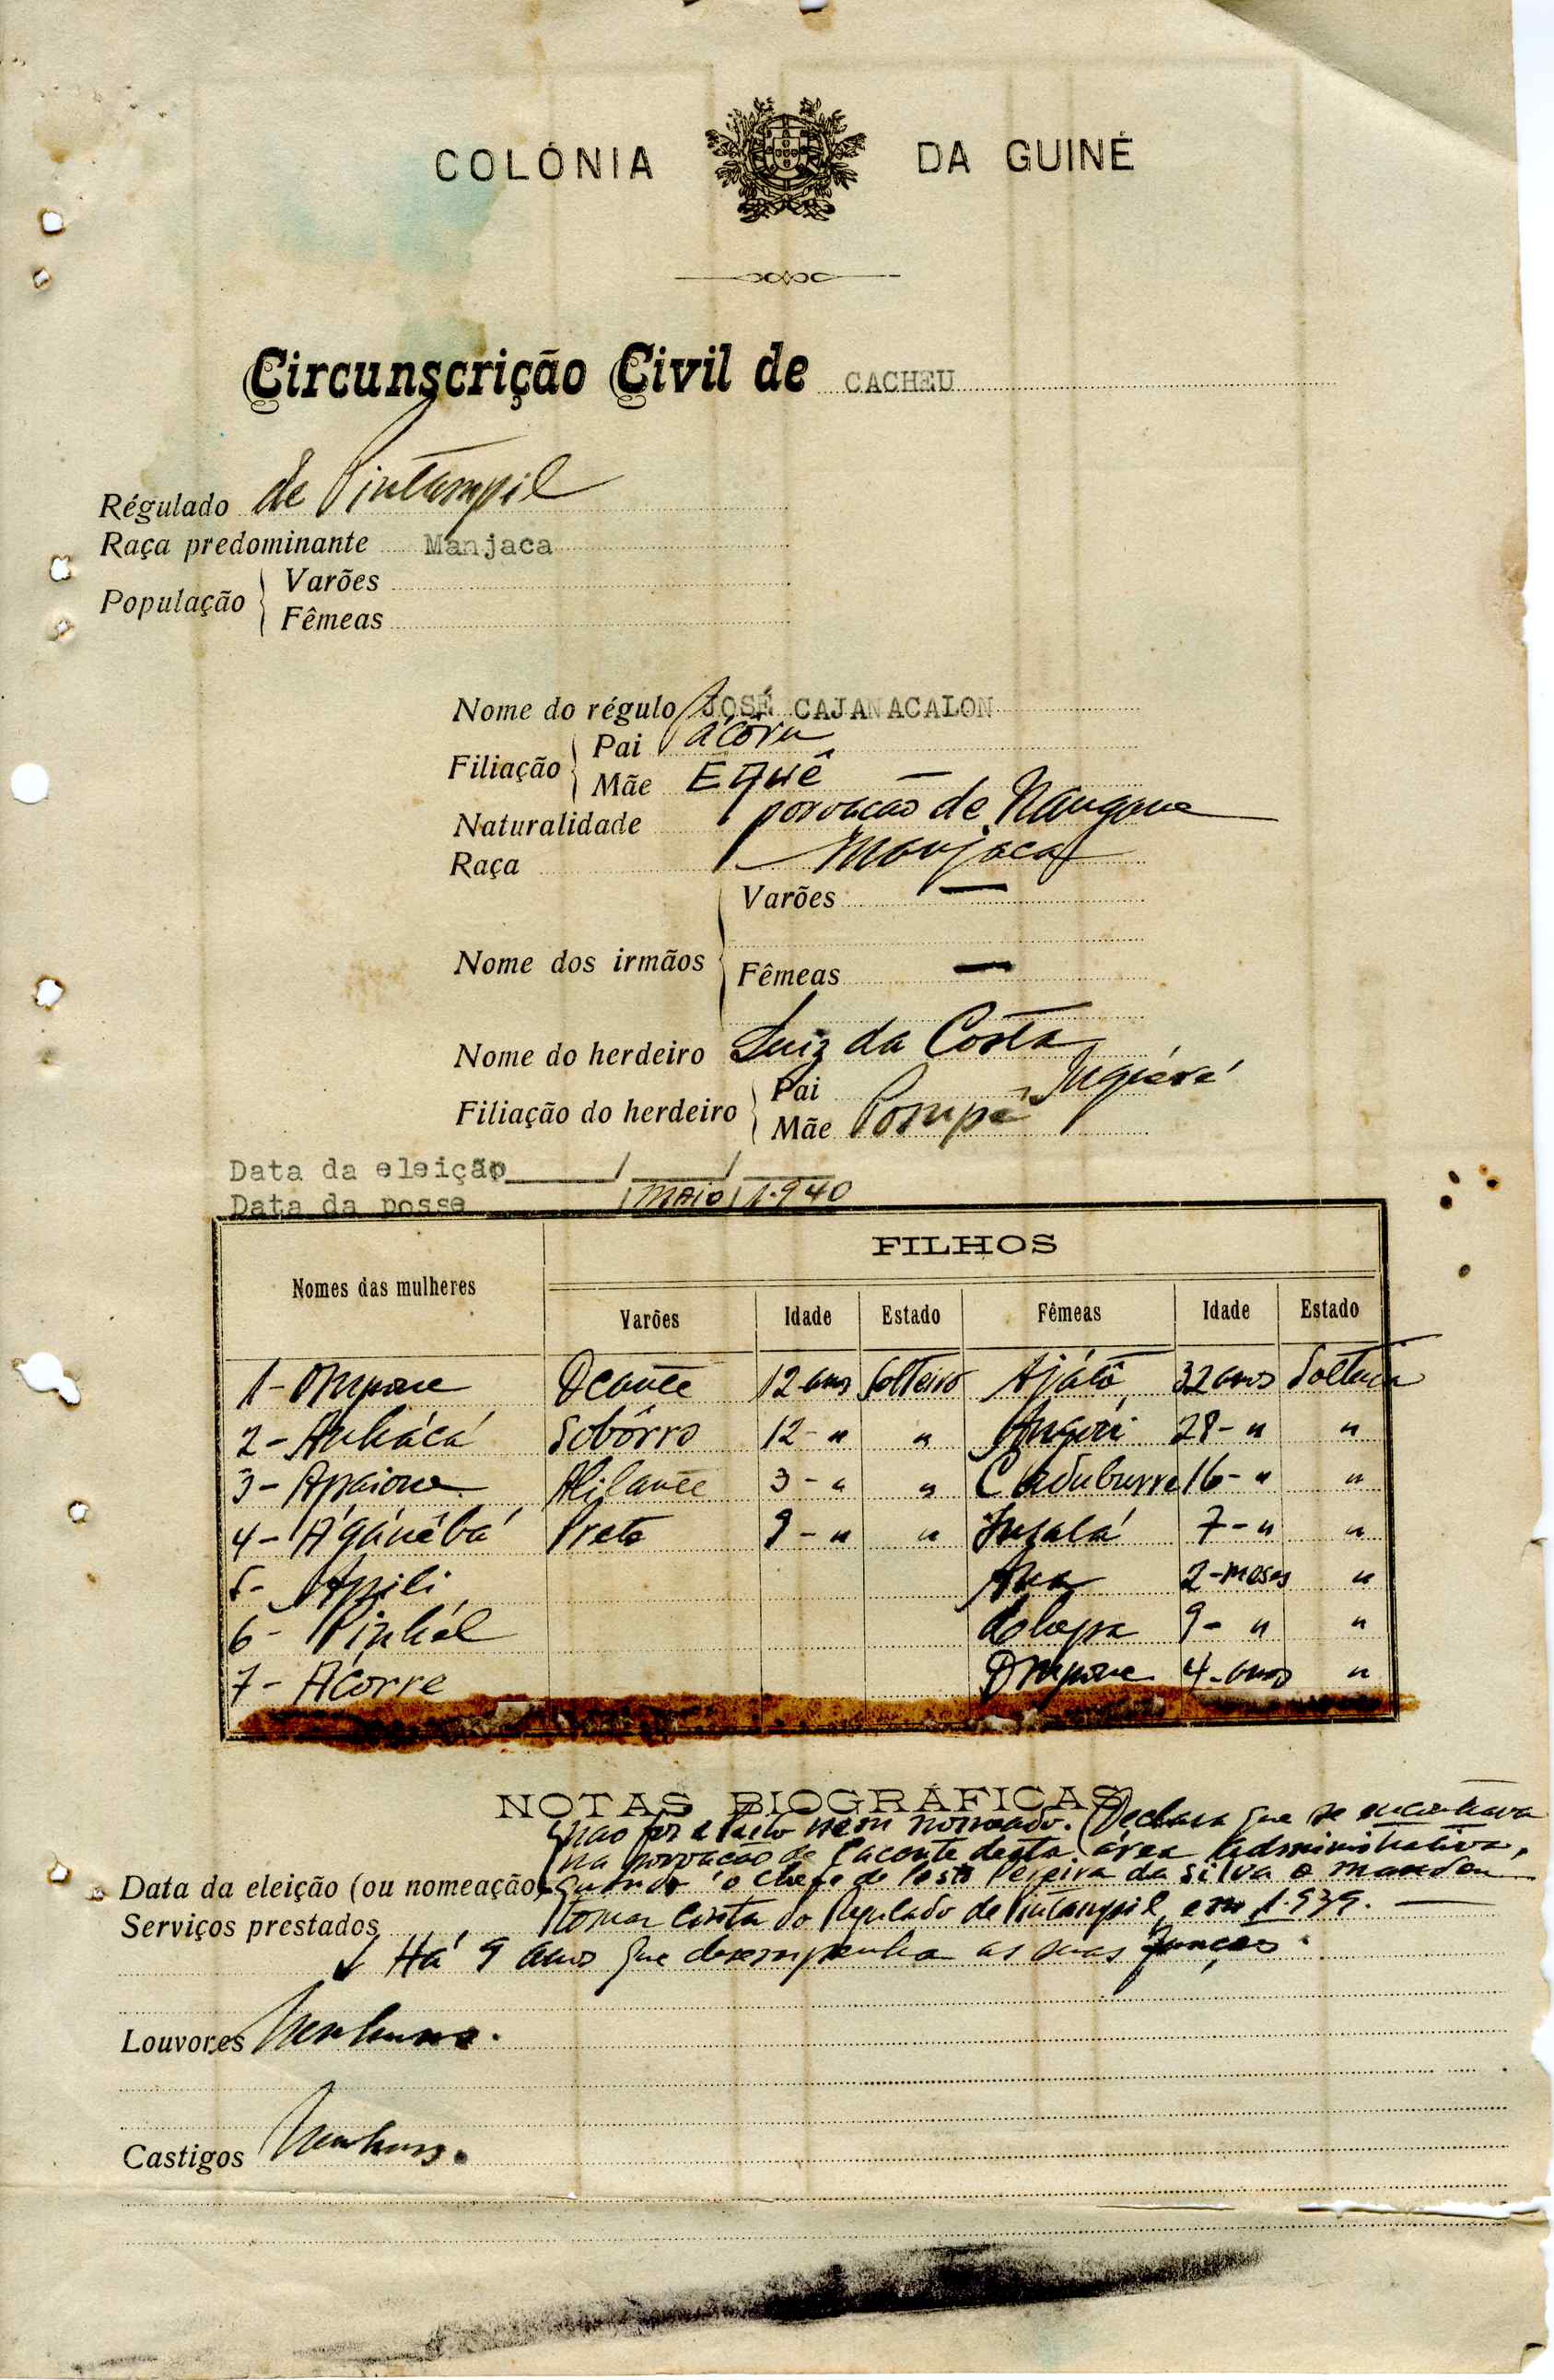 COLÓNIA DA GUINÉ
Circunscrição Civil de CACHEU
Régulado de Pintampil
Raça predominante Manjaca
População Varões
Fêmeas
Nome do régulo JOSÉ CAJANACALON
Filiação Pai
Mãe Equê —
Naturalidade povoação de
Raça Manjaca
Varões —
Nome dos irmãos
Fêmeas —
Nome do herdeiro Luiz da Costa
Filiação do herdeiro Pai
Mãe
Data da eleição / /
Data da posse / MAIO / 1.940
FILHOS
Nomes das mulheres Varões Idade Estado Fêmeas Idade Estado
1- Ompone 12 anos Solteiro Ajátô 32 anos Solteira
2- Sobórro 12- " " 28- " "
3- 3- " " 16- " "
4- Preto 9- " " 7- " "
5- Apili 2-meses "
6- 9- " "
7- Ácorre Ompone 4-anos "
NOTAS BIOGRÁFICAS
não foi eleito nem nomeado. Declara que se encontrava
na povoação de desta área administrativa,
Data da eleição (ou nomeação) quando o chefe de Posto Pereira da Silva o mandou
Serviços prestados tomar conta do Regulado de Pintampil, em 1.939. —
Há 9 anos que desempenha as suas funções.
Louvores Nenhuns.
Castigos Nenhuns.